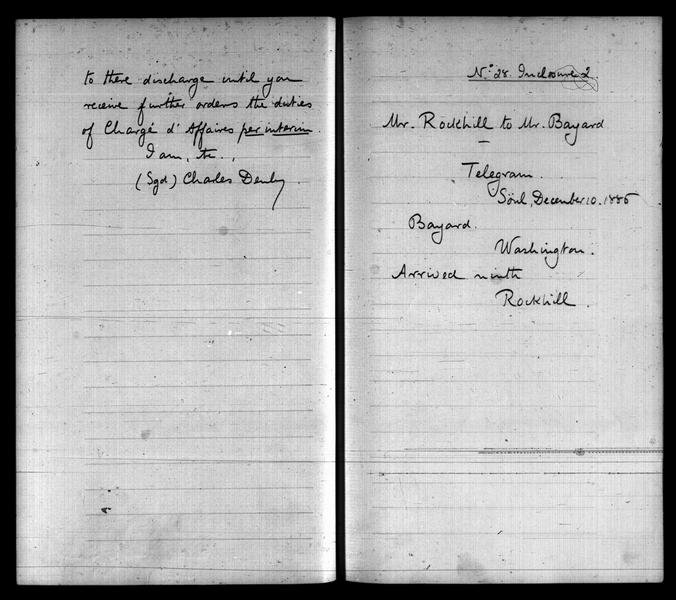 to there discharge until you
receive further orders the duties
of Chargé d'Affaires per interim.
I am, etc.,
(Sgd) Charles Denby.
No. 28. Inclosure 2.
Mr. Rockhill to Mr. Bayard
—
Telegram.
Söul, December 10. 1886
Bayard.
Washington.
Arrived ninth
Rockhill.